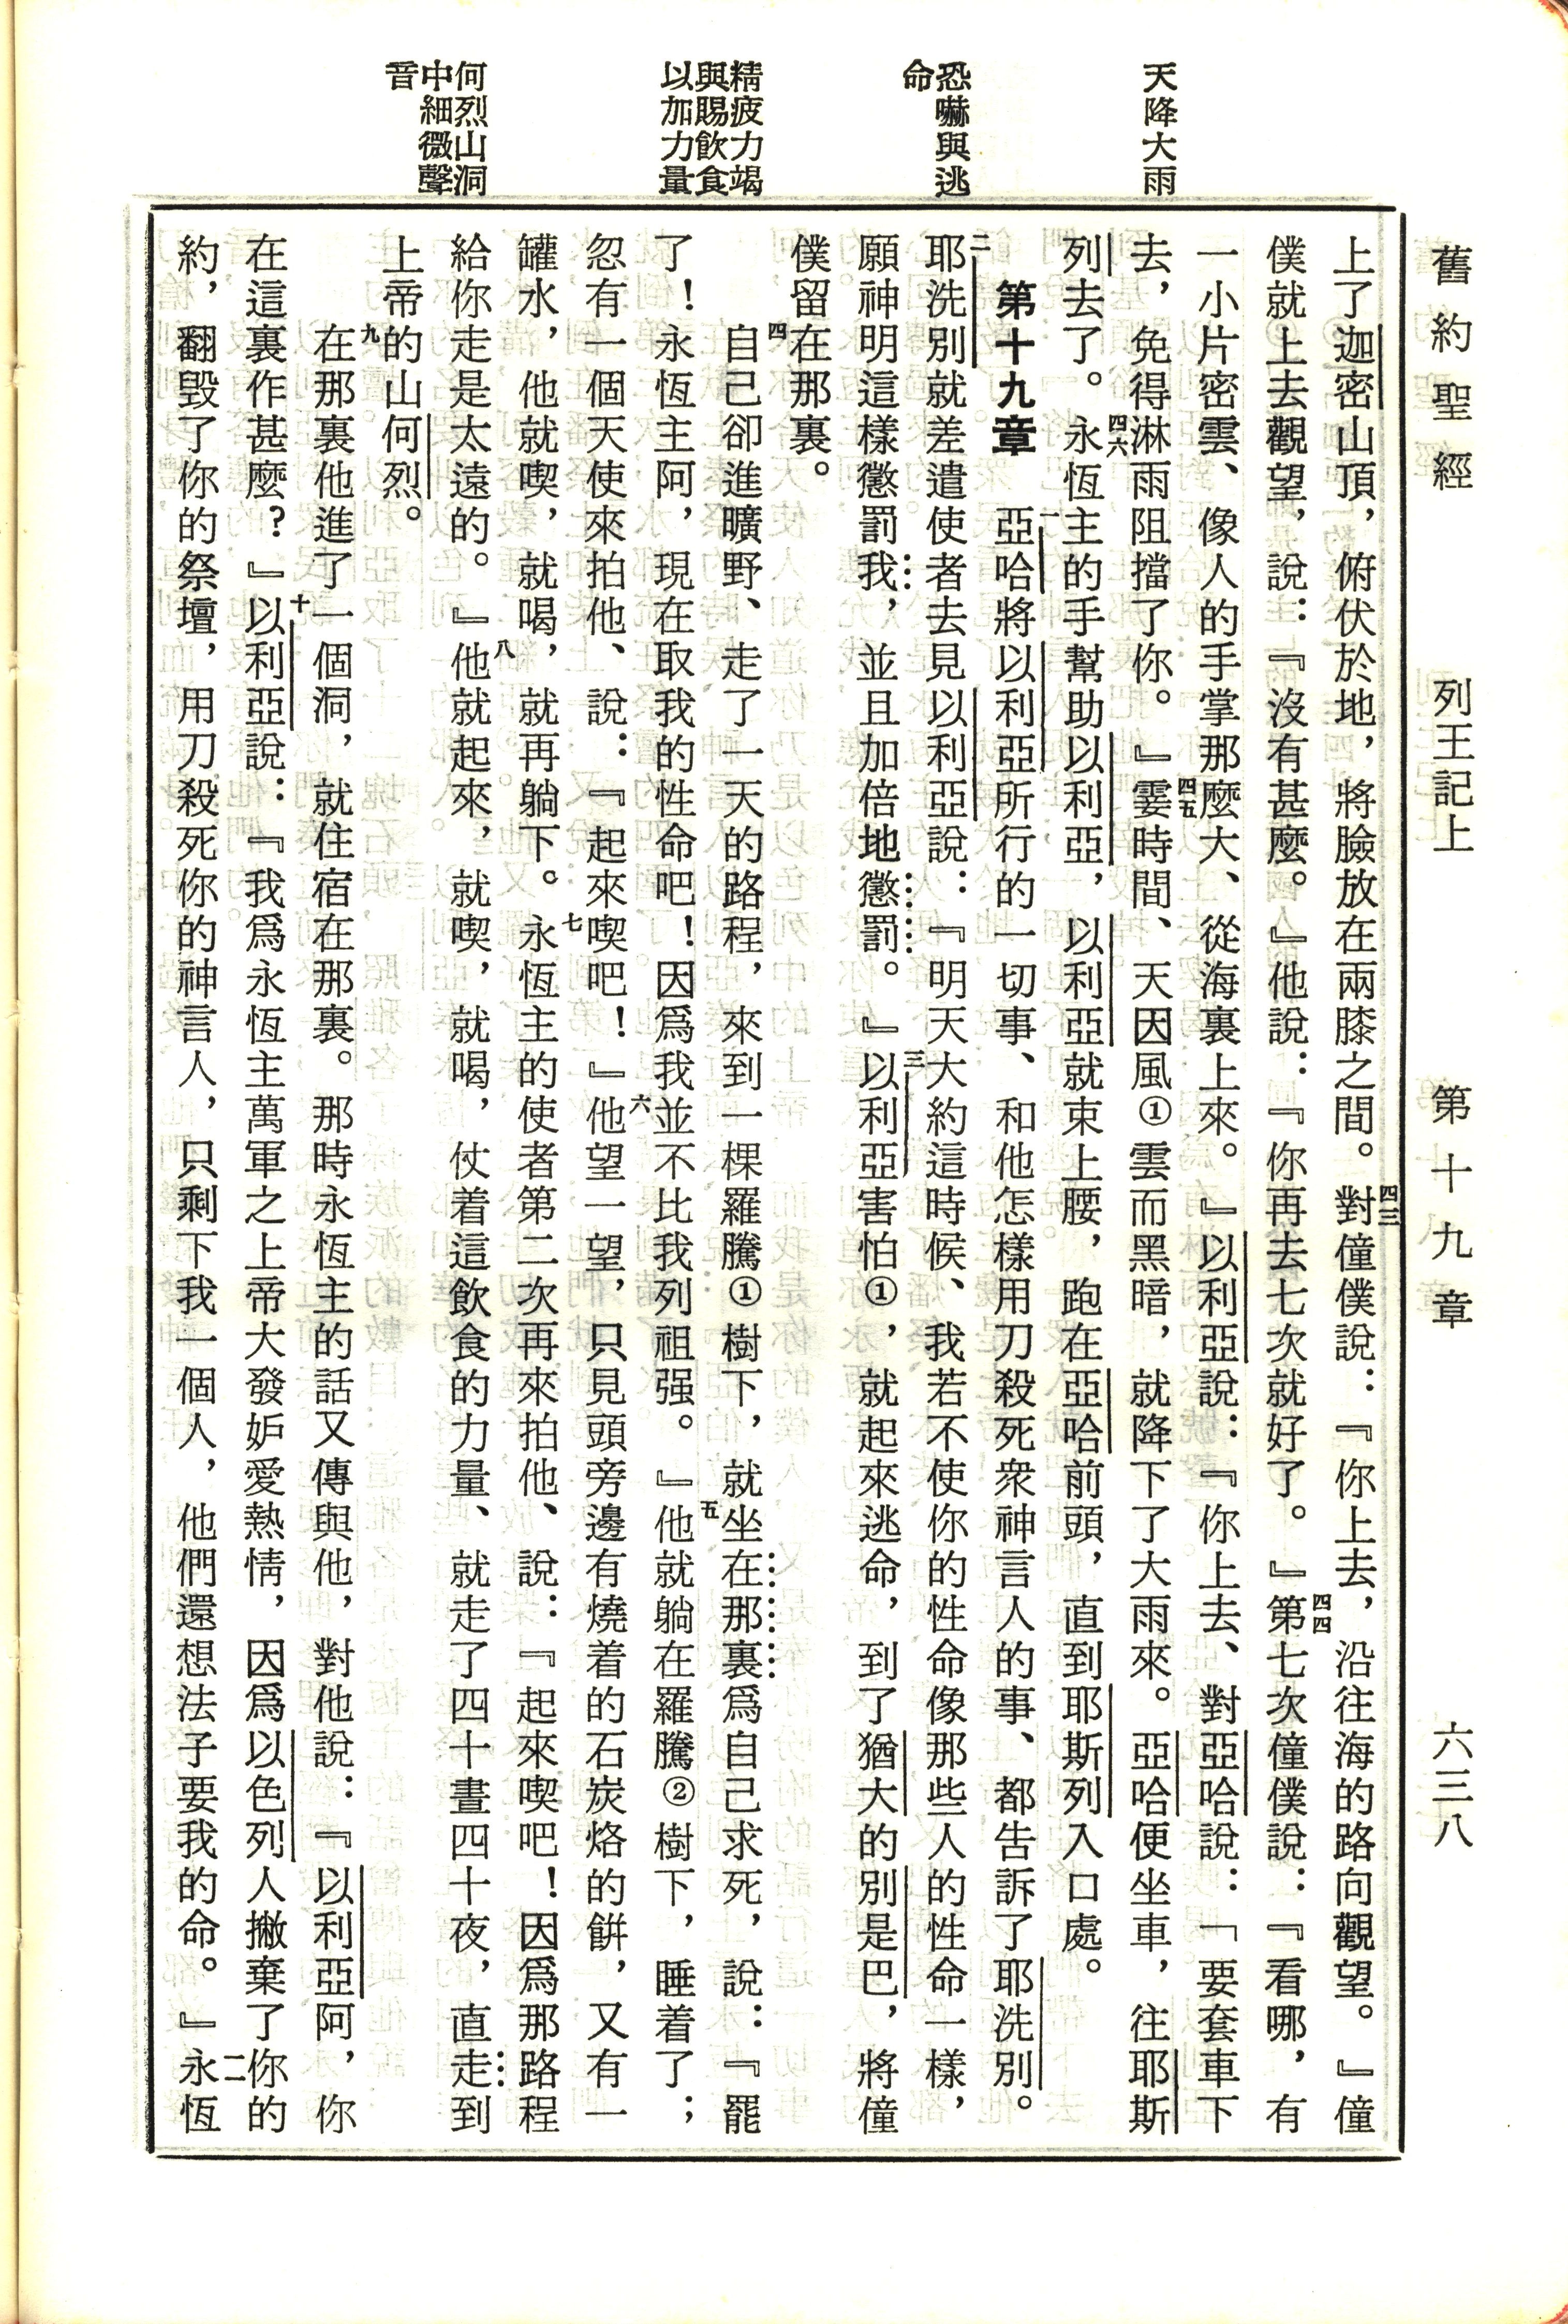 舊約聖經　列王記上　第十九章　六三八
天降大雨
恐嚇與逃
命
精疲力竭
與賜飲食
以加力量
何烈山洞
中細微聲
音
上了迦密山頂，俯伏於地，將臉放在兩膝之間。四三對僮僕說：『你上去，沿往海的路向觀望。』僮
僕就上去觀望，說：『沒有甚麼。』他說：『你再去七次就好了。』四四第七次僮僕說：『看哪，有
一小片密雲、像人的手掌那麼大、從海裏上來。』以利亞說：『你上去、對亞哈說：「要套車下
去，免得淋雨阻擋了你。』四五霎時間、天因風①雲而黑暗，就降下了大雨來。亞哈便坐車，往耶斯
列去了。四六永恆主的手幫助以利亞，以利亞就束上腰，跑在亞哈前頭，直到耶斯列入口處。
第十九章　一亞哈將以利亞所行的一切事、和他怎樣用刀殺死衆神言人的事、都告訴了耶洗別。
二耶洗別就差遣使者去見以利亞說：『明天大約這時候、我若不使你的性命像那些人的性命一樣，
願神明這樣懲罰我，並且加倍地懲罰。』三以利亞害怕①，就起來逃命，到了猶大的別是巴，將僮
僕留在那裏。
四自己卻進曠野、走了一天的路程，來到一棵羅騰①樹下，就坐在那裏爲自己求死，說：『罷
了！永恆主阿，現在取我的性命吧！因爲我並不比我列祖强。』五他就躺在羅騰②樹下，睡着了；
忽有一個天使來拍他、說：『起來喫吧！』六他望一望，只見頭旁邊有燒着的石炭烙的餅，又有一
罐水，他就喫，就喝，就再躺下。七永恆主的使者第二次再來拍他、說：『起來喫吧！因爲那路程
給你走是太遠的。』八他就起來，就喫，就喝，仗着這飲食的力量、就走了四十晝四十夜，直走到
上帝的山何烈。
九在那裏他進了一個洞，就住宿在那裏。那時永恆主的話又傳與他，對他說：『以利亞阿，你
在這裏作甚麼？』十以利亞說：『我爲永恆主萬軍之上帝大發妒愛熱情，因爲以色列人撇棄了你的
約，翻毀了你的祭壇，用刀殺死你的神言人，只剩下我一個人，他們還想法子要我的命。』一一永恆